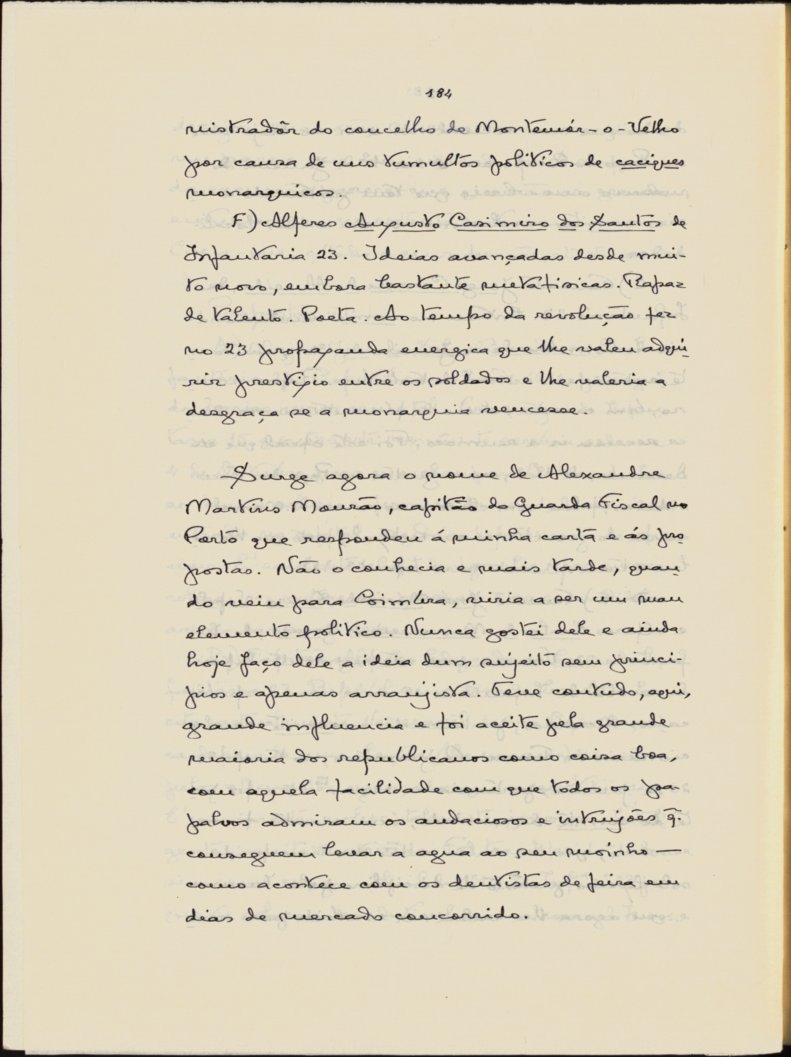 184
nistradôr do concelho de Montemór-o-Velho
por causa de uns tumultos politicos de caciques
monarquicos.
F) Alferes Augusto Casimiro dos Santos de
Infantaria 23. Ideias avançadas desde mui-
to novo, embora bastante metafisicas. Rapaz
de talento. Poeta. Ao tempo da revolução fez
no 23 propaganda energica que lhe valeu adqui-
rir prestigio entre os soldados e lhe valeria a
desgraça se a monarquia vencesse.
Surge agora o nome de Alexandre
Martins Mourão, capitão da Guarda Fiscal no
Porto que respondeu á minha carta e ás pro-
postas. Não o conhecia e mais tarde, quan-
do veiu para Coimbra, viria a ser um mau
elemento politico. Nunca gostei dele e ainda
hoje faço dele a ideia dum sujeito sem princi-
pios e apenas arranjista. Teve contudo, aqui,
grande influencia e foi aceite pela grande
maioria dos republicanos como coisa boa,
com aquela facilidade com que todos os pa-
palvos admiram os audaciosos e intrujões q.
conseguem levar a agua ao seu moínho —
como acontece com os dentistas de feira em
dias de mercado concorrido.